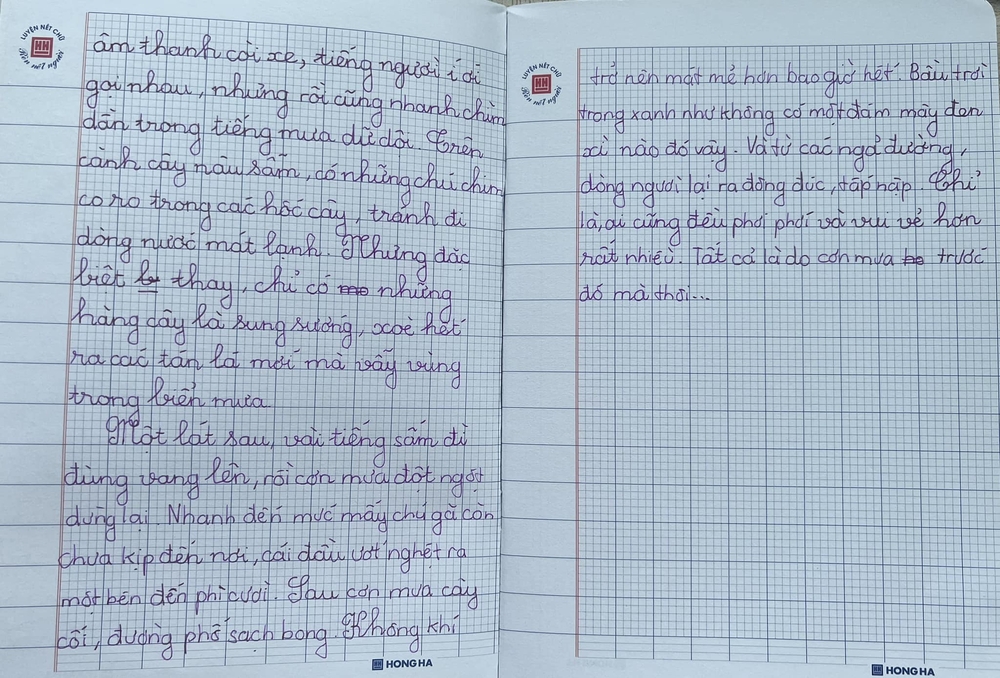 LUYỆN NÉT CHỮ
HH
Rèn nết người
âm thanh còi xe, tiếng người í ới
gọi nhau, nhưng rồi cũng nhanh chìm
dần trong tiếng mưa dữ dội. Trên
cành cây nâu sẫm, có những chú chim
co ro trong các hốc cây, tránh đi
dòng nước mát lạnh. Nhưng đặc
biệt thay, chỉ có những
hàng cây là sung sướng, xoè hết
ra các tán lá mới mà vẫy vùng
trong biển mưa
Một lát sau, vài tiếng sấm đì
đùng vang lên, rồi cơn mưa đột ngột
dừng lại. Nhanh đến mức mấy chú gà còn
chưa kịp đến nơi, cái đầu ướt nghẹt ra
một bên đến phì cười. Sau cơn mưa cây
cối, đường phố sạch bong. Không khí
HONG HA
LUYỆN NÉT CHỮ
HH
Rèn nết người
trở nên mát mẻ hơn bao giờ hết. Bầu trời
trong xanh như không có một đám mây đen
xì nào đó vậy. Và từ các ngả đường,
dòng người lại ra đông đúc, tấp nập. Chỉ
là, ai cũng đều phơi phới và vui vẻ hơn
rất nhiều. Tất cả là do cơn mưa trước
đó mà thôi...
HONG HA